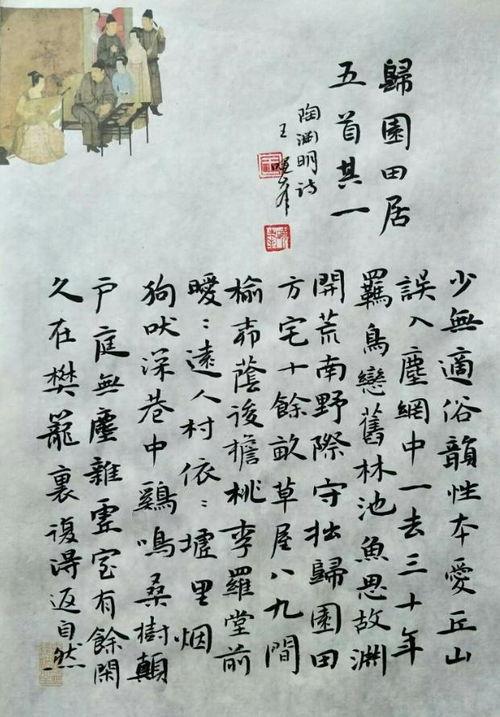 歸園田居
五首其一
陶渊明诗
王
少無適俗韻性本愛丘山
誤入塵網中一去三十年
羈鳥戀舊林池魚思故渊
開荒南野際守拙歸園田
方宅十餘畝草屋八九間
榆柳蔭後檐桃李羅堂前
曖：遠人村依：墟里烟
狗吠深巷中鷄鳴桑樹顛
戶庭無塵雜虛室有餘閑
久在樊籠裏復得返自然